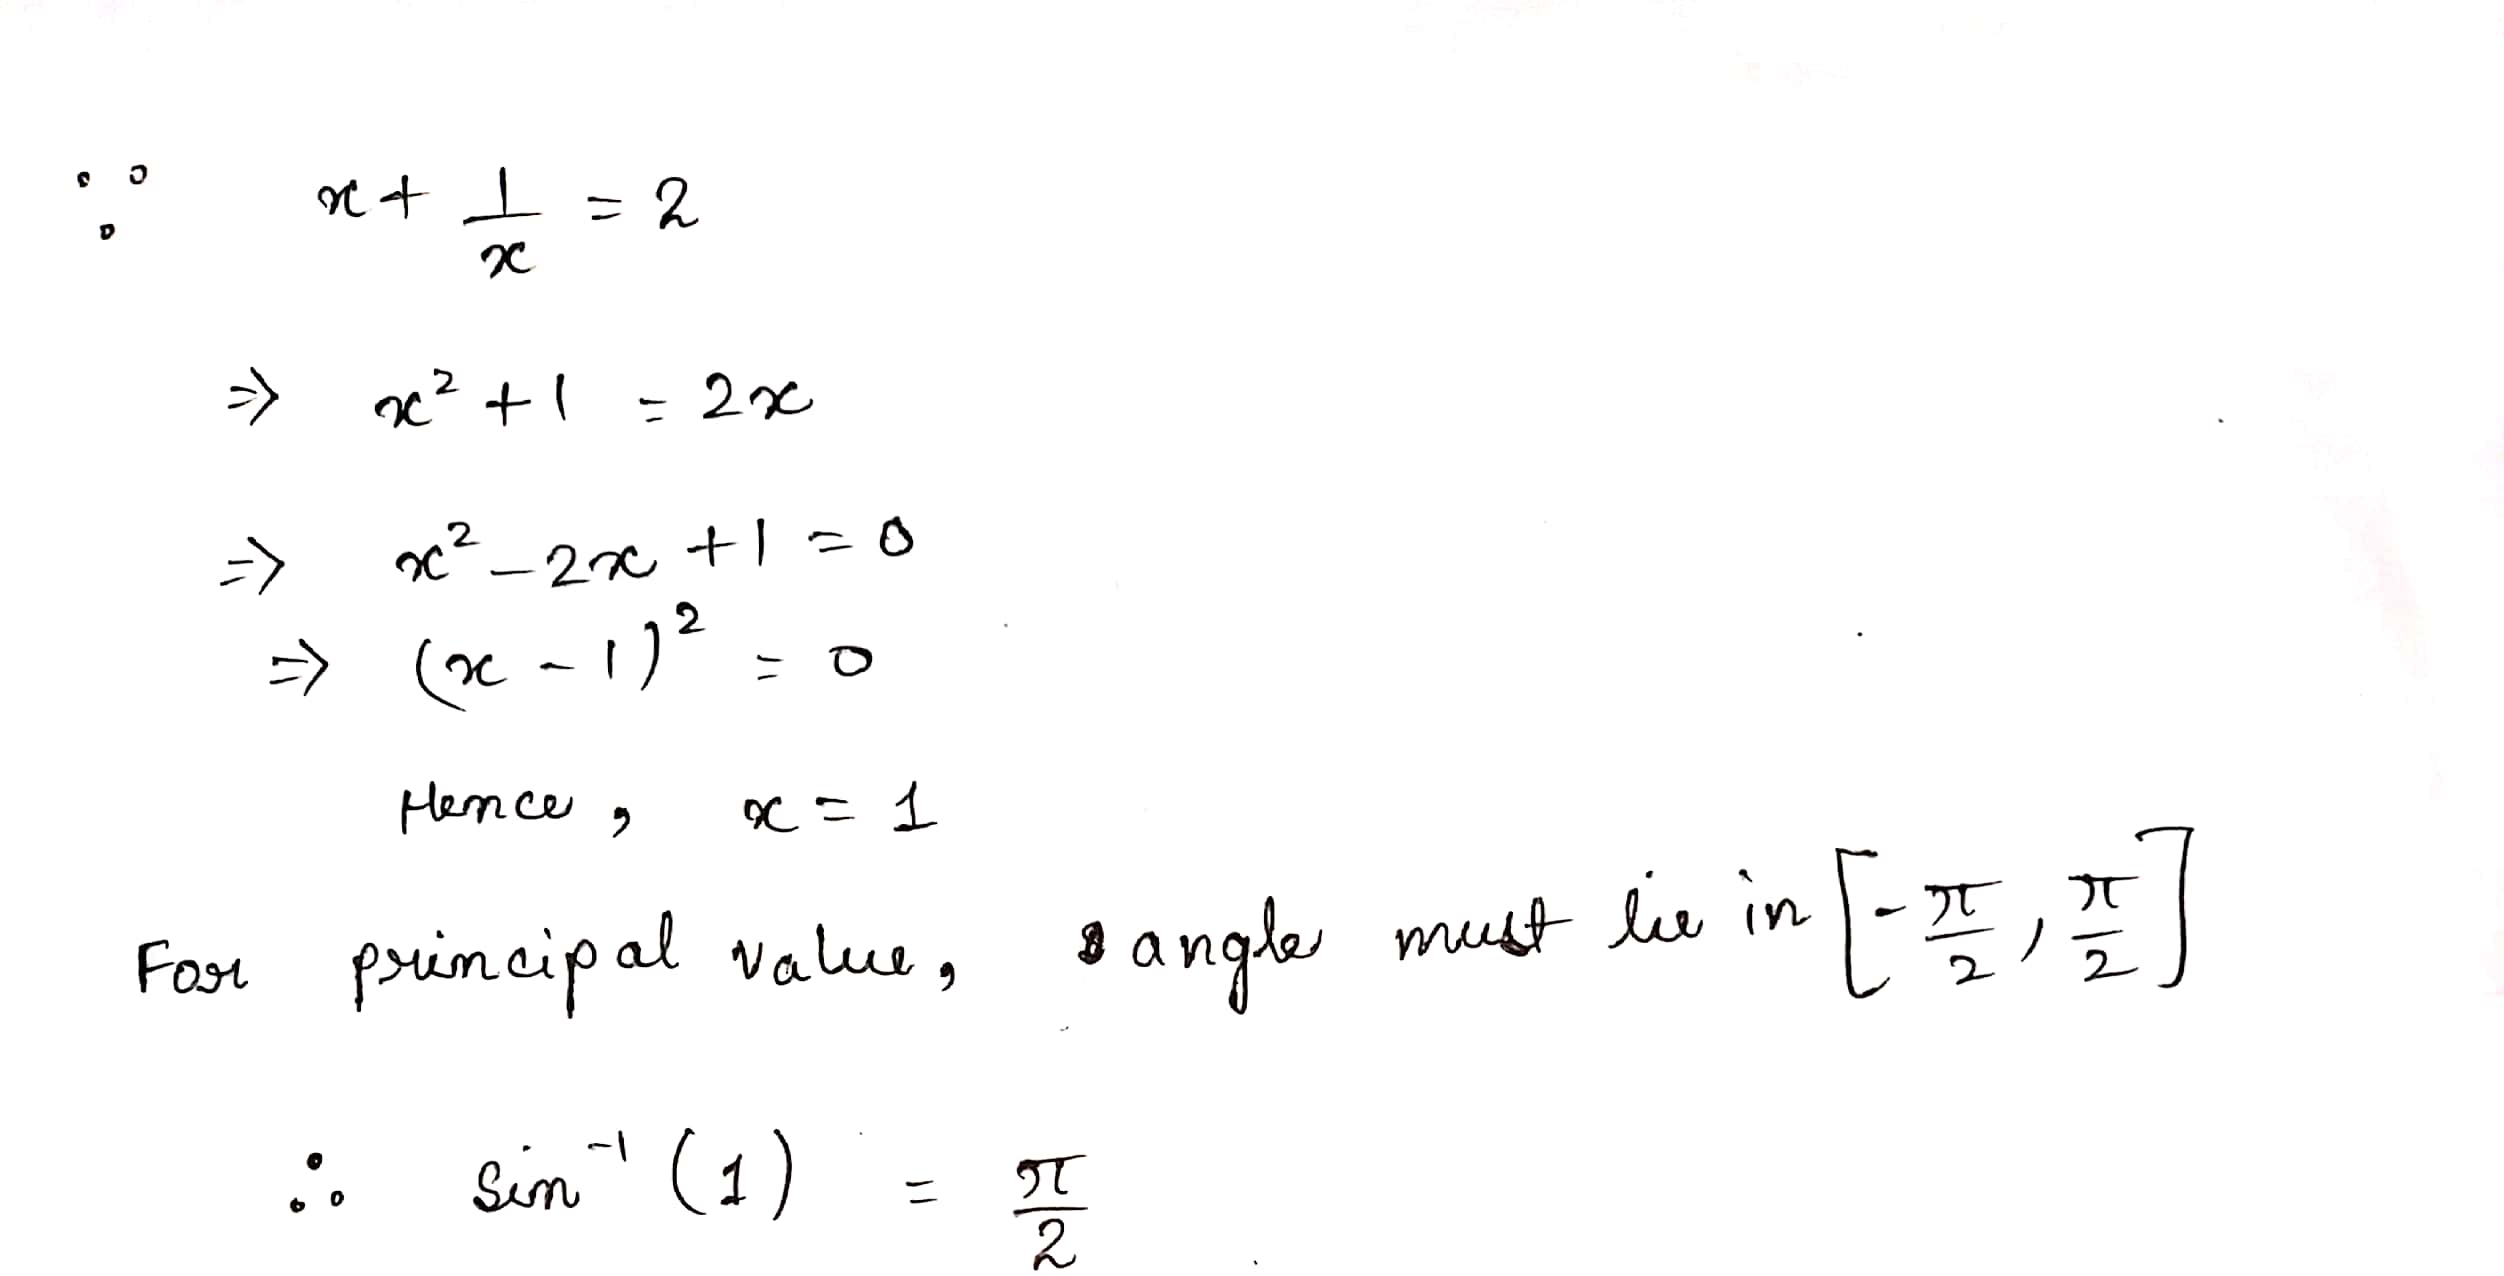 ∵ x + 1/x = 2
⇒ x² + 1 = 2x
⇒ x² - 2x + 1 = 0
⇒ (x - 1)² = 0
Hence, x = 1
For principal value, angle must lie in [-π/2, π/2]
∴ sin⁻¹ (1) = π/2